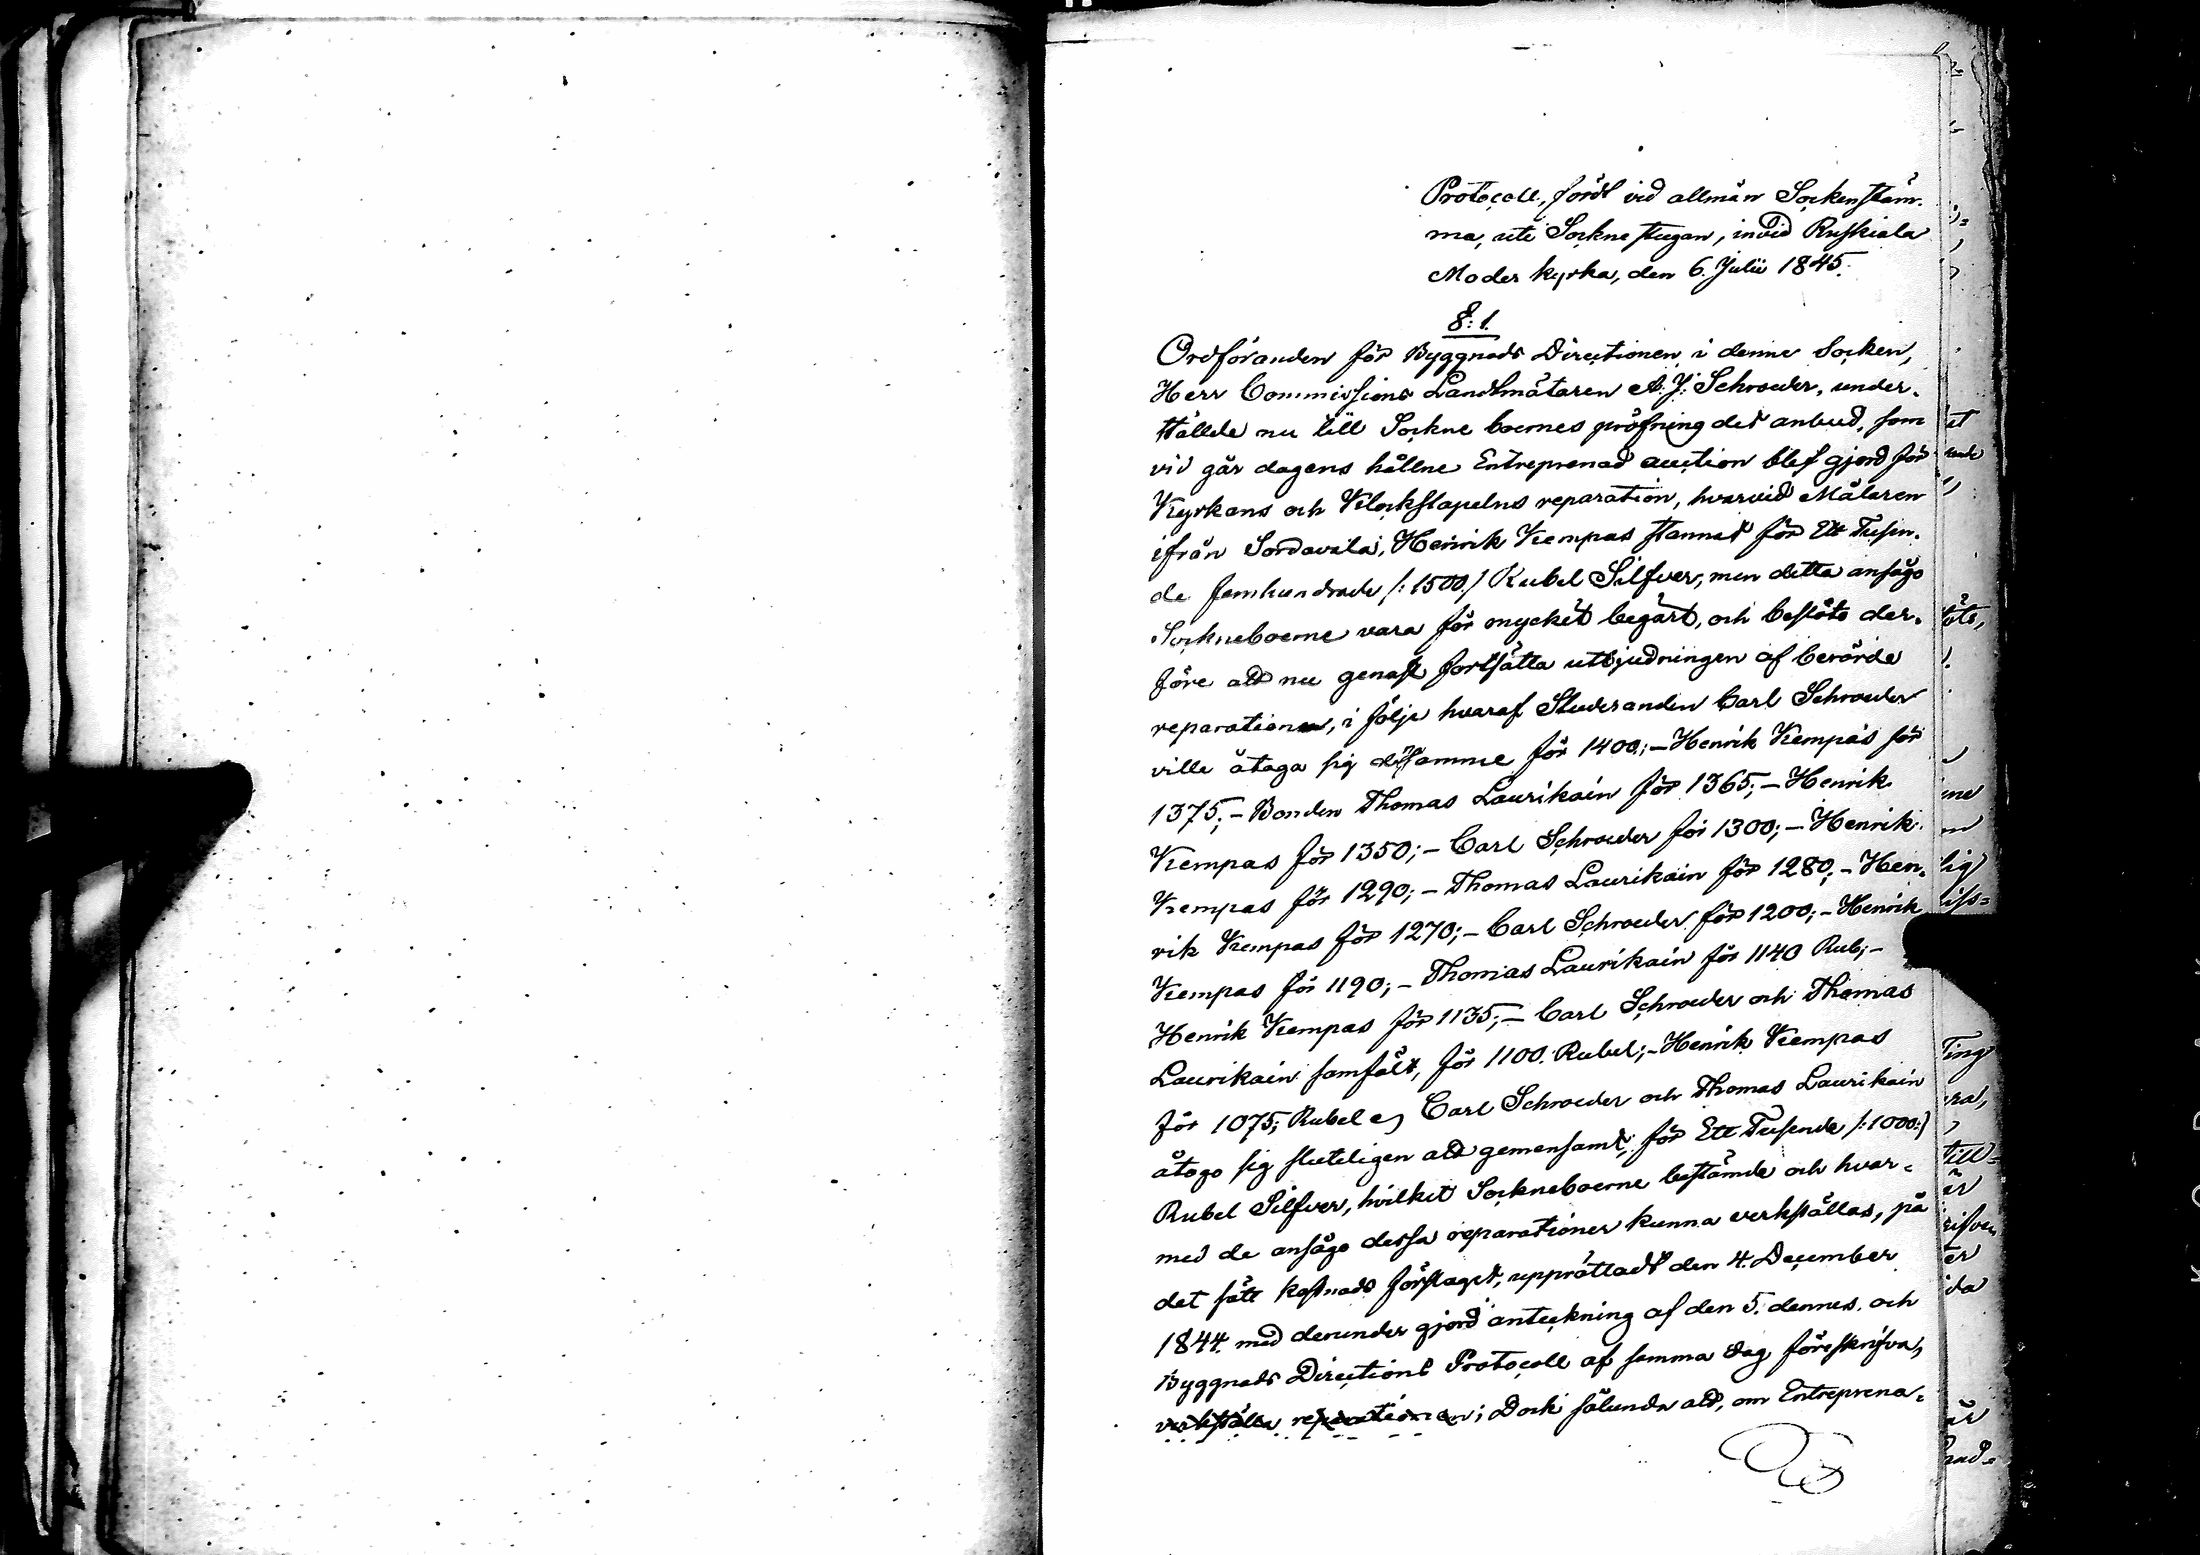 Protocoll, fördt vid allmän Sockenstäm-
ma, uti Sockne stugan, invid Ruskiala
Moder kyrka, den 6. Julii 1845.
§: 1.
Ordföranden för Byggnads Directionen i denne Socken,
Herr Commissions Landtmätaren A: J: Schroeder, under-
ställde nu till Sockne boernes pröfning det anbud, som
vid går dagens hållne Entreprenad auction blef gjord för
Kyrkans och Klockstapelns reparation, hvarvid Målaren
ifrån Sordavala, Henrik Kempas stannat för Ett Tusen-
de femhundrade /: 1500./ Rubel Silfver, men detta ansågo
Sockneboerne vara för mycket begärt, och beslöto der-
före att nu genast fortsätta utbjudningen af berörde
reparationen, i följe hvaraf Studeranden Carl Schroeder
ville åtaga sig densamme för 1400; – Henrik Kempas för
1375; – Bonden Thomas Laurikain för 1365; – Henrik
Kempas för 1350; – Carl Schroeder för 1300; – Henrik
Kempas för 1290; – Thomas Laurikain för 1280; – Hen-
rik Kempas för 1270; – Carl Schroeder för 1200; – Henrik
Kempas för 1190; – Thomas Laurikain för 1140 Rub; –
Henrik Kempas för 1135; – Carl Schroeder och Thomas
Laurikain samfält, för 1100. Rubel; – Henrik Kempas
för 1075; Rubel Carl Schroeder och Thomas Laurikain
åtogo sig sluteligen att gemensamt, för Ett Tusende /: 1000:/
Rubel Silfver, hvilket Sockneboerne bestämde och hvar-
med de ansågo dessa reparationer kunna verkställas, på
det sätt kostnads förslaget, upprättadt den 4. December
1844. med derunder gjord anteckning af den 5. dennes, och
Byggnads Directions Protocoll af samma dag föreskrifva,
verkställa reparationen; Dock sålunda att, om Entreprena-